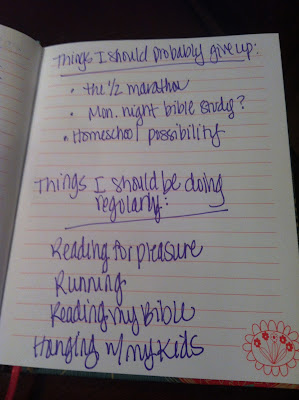 Things I should probably give up:
• the 1/2 marathon
• Mon. night bible study?
• Homeschool possibility
Things I should be doing
regularly:
Reading for pleasure
Running
Reading my Bible
Hanging w/ my kids